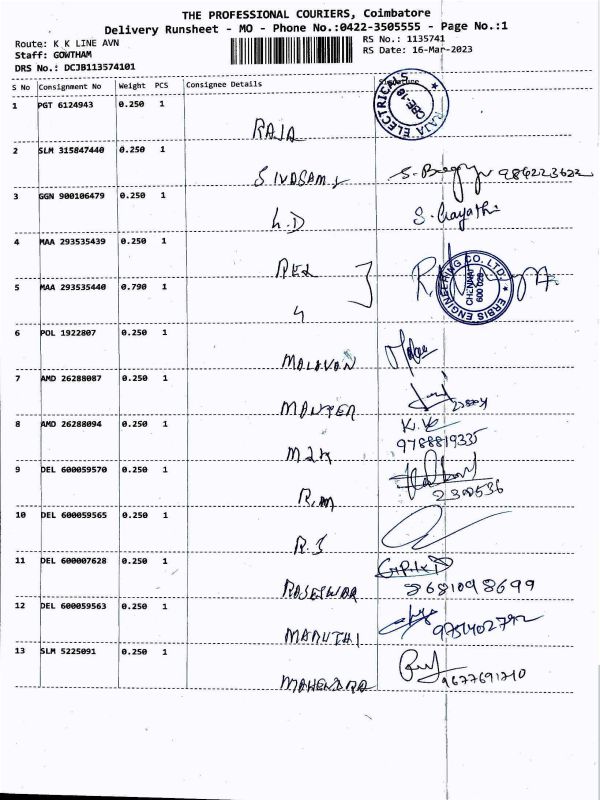 THE PROFESSIONAL COURIERS, Coimbatore
Delivery Runsheet - MO - Phone No.:0422-3505555 - Page No.:1
Route: K K LINE AVN
RS No.: 1135741
Staff: GOWTHAM
RS Date: 16-Mar-2023
DRS No.: DCJB113574101
S No Consignment No Weight PCS Consignee Details Signature
1 PGT 6124943 0.250 1
RAJA
RAJA ELECTRICALS
CBE-18
2 SLM 315847440 0.250 1
SIVASAMY
3 GGN 900106479 0.250 1
S. Gayathi
4 MAA 293535439 0.250 1
ERBIS ENGINEERING CO. LTD.
CHENNAI
600 028
5 MAA 293535440 0.790 1
6 POL 1922807 0.250 1
MALAVAN
7 AMD 26288087 0.250 1
8 AMD 26288094 0.250 1
9788819335
9 DEL 600059570 0.250 1
R.M
2300536
10 DEL 600059565 0.250 1
11 DEL 600007628 0.250 1
8681098699
12 DEL 600059563 0.250 1
MARUTHI
13 SLM 5225091 0.250 1
MAHENDRA
9677691710